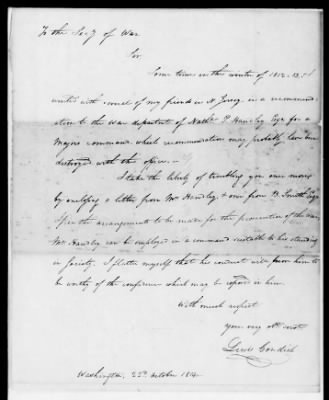 To the Sec'y of War
Sir
Some time in the winter of 1812-13 I
united with several of my friends in N Jersey in a recommen-
dation to the War department of Nath'l Esqr for a
Majors command, which recommendation may probably have been
destroyed with the office.
I take the liberty of troubling you once more
by enclosing a letter from Mr & one from B. Smith Esqr
Upon the arrangements to be made for the prosecution of the war,
Mr can be employed in a command suitable to his standing
in Society. I flatter myself that his conduct will prove him to
be worthy of the confidence which may be reposed in him.
With much respect
your very obt servt
Lewis Condict
Washington, 22d October 1814